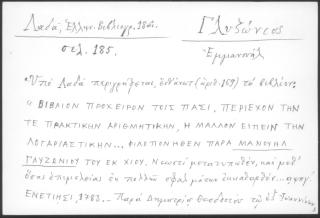 Λαδᾶ, Ἑλλην. Βιβλιογρ. 184.
σελ. 185.
Γλυζώνιος
Ἐμμανουὴλ
«Ὑπὸ Λαδᾶ περιγράφεται, (ἀριθ. 169) τὸ βιβλίον:
"ΒΙΒΛΙΟΝ ΠΡΟΧΕΙΡΟΝ ΤΟΙΣ ΠΑΣΙ, ΠΕΡΙΕΧΟΝ ΤΗΝ
ΤΕ ΠΡΑΚΤΙΚΗΝ ΑΡΙΘΜΗΤΙΚΗΝ, Η ΜΑΛΛΟΝ ΕΙΠΕΙΝ ΤΗΝ
ΛΟΓΑΡΙΑΣΤΙΚΗΝ... ΦΙΛΟΠΟΝΗΘΕΝ ΠΑΡΑ ΜΑΝΟΥΗΛ
ΓΛΥΖΩΝΙΟΥ ΤΟΥ ΕΚ ΧΙΟΥ. Νεωστὶ μετατυπωθέν, καὶ μεθ'
ὅσης ἐπιμελείας ἐκ πολλῶν σφαλμάτων
ΕΝΕΤΙΗΣΙ, 1783. Παρὰ Δημητρίῳ Θεοδοσίου τῷ ἐξ Ἰωαννίνων